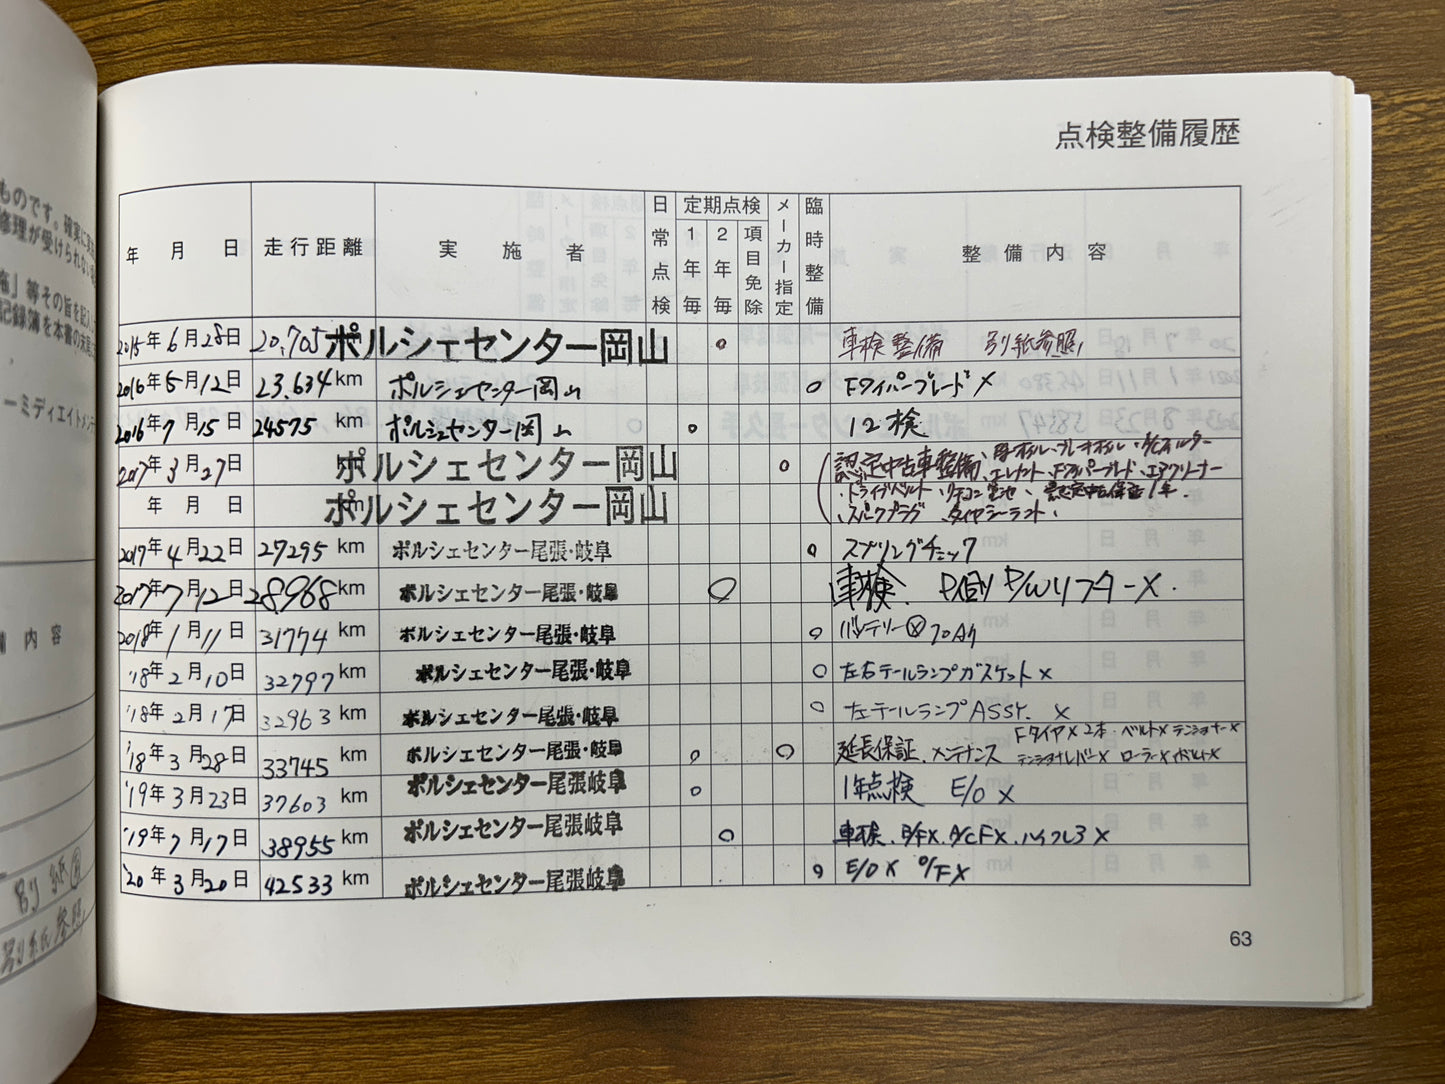 点検整備履歴
年 月 日 走行距離 実施者 日常点検 定期点検 1年毎 2年毎 項目免除 メーカー指定 臨時整備 整備内容
2015年6月28日 20,705 ポルシェセンター岡山 ○ 車検整備 別紙参照
2016年5月12日 23,634km ポルシェセンター岡山 ○ Fワイパーブレード×
2016年7月15日 24575km ポルシェセンター岡山 ○ 12検
2017年3月27日 ポルシェセンター岡山 ○ 認定中古車整備、
エレメント、Fワイパーブレード、エアクリーナー
年 月 日 km ポルシェセンター岡山 ・ドライブベルト・リモコン電池、認定中古保証1年.
・スパークプラグ、タイヤシーラント、
2017年4月22日 27295km ポルシェセンター尾張・岐阜 ○ スプリングチェック
2017年7月12日 28968km ポルシェセンター尾張・岐阜 ○ 車検.
2018年1月11日 31774km ポルシェセンター尾張・岐阜 ○ バッテリーⓍ70Ah
'18年2月10日 32797km ポルシェセンター尾張・岐阜 ○ 左右テールランプガスケット×
'18年2月17日 32963km ポルシェセンター尾張・岐阜 ○ 左テールランプASSY. ×
'18年3月28日 33745km ポルシェセンター尾張・岐阜 ○ ○ 延長保証、メンテナンス Fタイヤ×2本・ベルト×テンショナー×
テンショナレバー× ローラー×ボルト×
'19年3月23日 37603km ポルシェセンター尾張岐阜 ○ 1年点検 E/O×
'19年7月17日 38955km ポルシェセンター尾張岐阜 ○ 車検、B/F×、A/CF×、
'20年3月20日 42533km ポルシェセンター尾張岐阜 ○ E/O× O/F×
63
ものです。確実に
修理が受けられない
等その旨を記入
記録簿を本書の末尾
ーミディエイトメンテ
内容
別紙
別紙参照